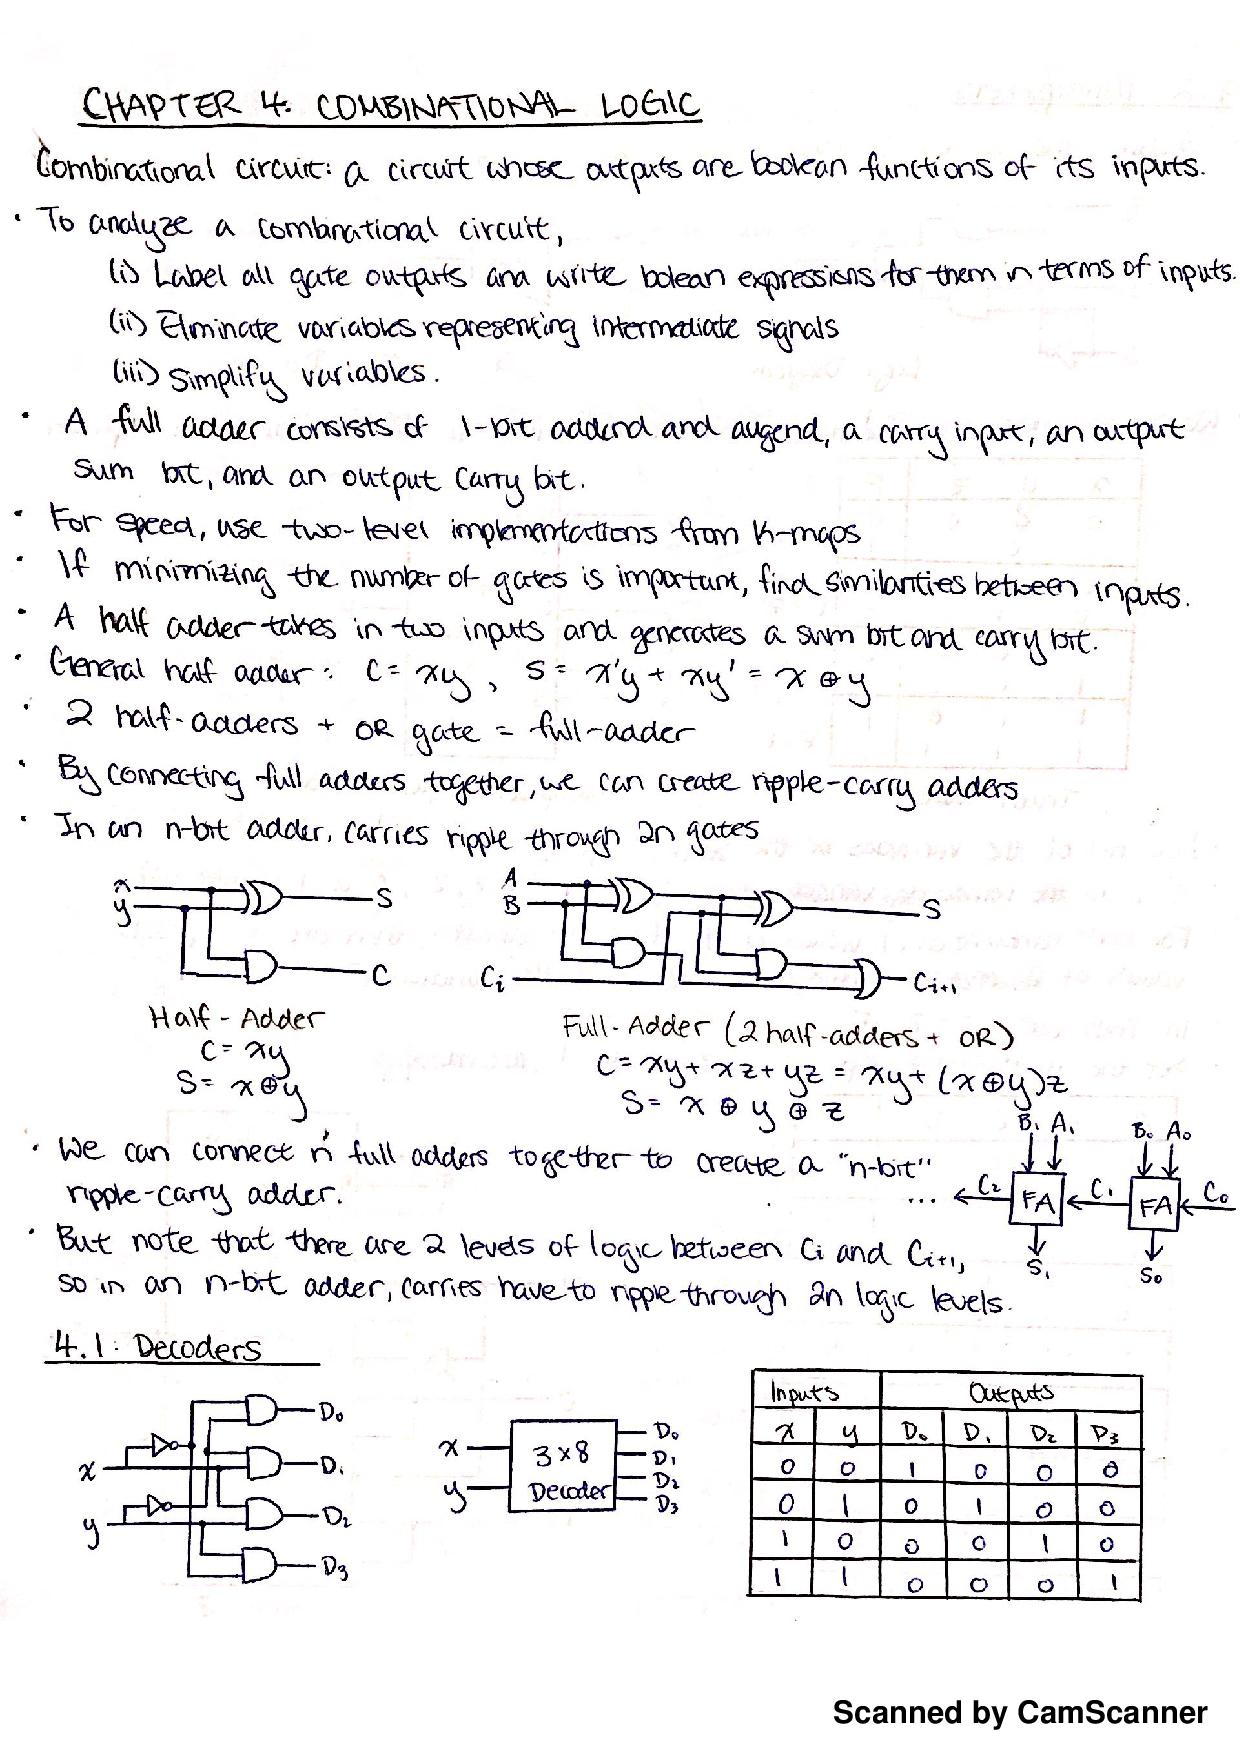 CHAPTER 4. COMBINATIONAL LOGIC
Combinational circuit: a circuit whose outputs are boolean functions of its inputs.
• To analyze a combinational circuit,
(i) Label all gate outputs and write bolean expressions for them in terms of inputs.
(ii) Eliminate variables representing intermediate signals
(iii) Simplify variables.
• A full adder consists of 1-bit addend and augend, a carry input, an output
sum bit, and an output carry bit.
• For speed, use two-level implementations from K-maps
• If minimizing the number of gates is important, find similarities between inputs.
• A half adder takes in two inputs and generates a sum bit and carry bit.
• General half adder: C = xy, S = x'y + xy' = x ⊕ y
• 2 half-adders + OR gate = full-adder
• By connecting full adders together, we can create ripple-carry adders
• In an n-bit adder, carries ripple through 2n gates
x
y
S
C
A
B
Ci
S
Ci+1
Half-Adder
C = xy
S = x⊕y
Full-Adder (2 half-adders + OR)
C = xy + xz + yz = xy + (x⊕y)z
S = x ⊕ y ⊕ z
• We can connect 'n' full adders together to create a "n-bit"
ripple-carry adder.
B1 A1 B0 A0
... C2 FA C1 FA C0
S1 S0
• But note that there are 2 levels of logic between Ci and Ci+1,
so in an n-bit adder, carries have to ripple through 2n logic levels.
4.1: Decoders
x
y
D0
D1
D2
D3
x
y
3x8
Decoder
D0
D1
D2
D3
Inputs Outputs
x y D0 D1 D2 D3
0 0 1 0 0 0
0 1 0 1 0 0
1 0 0 0 1 0
1 1 0 0 0 1
Scanned by CamScanner